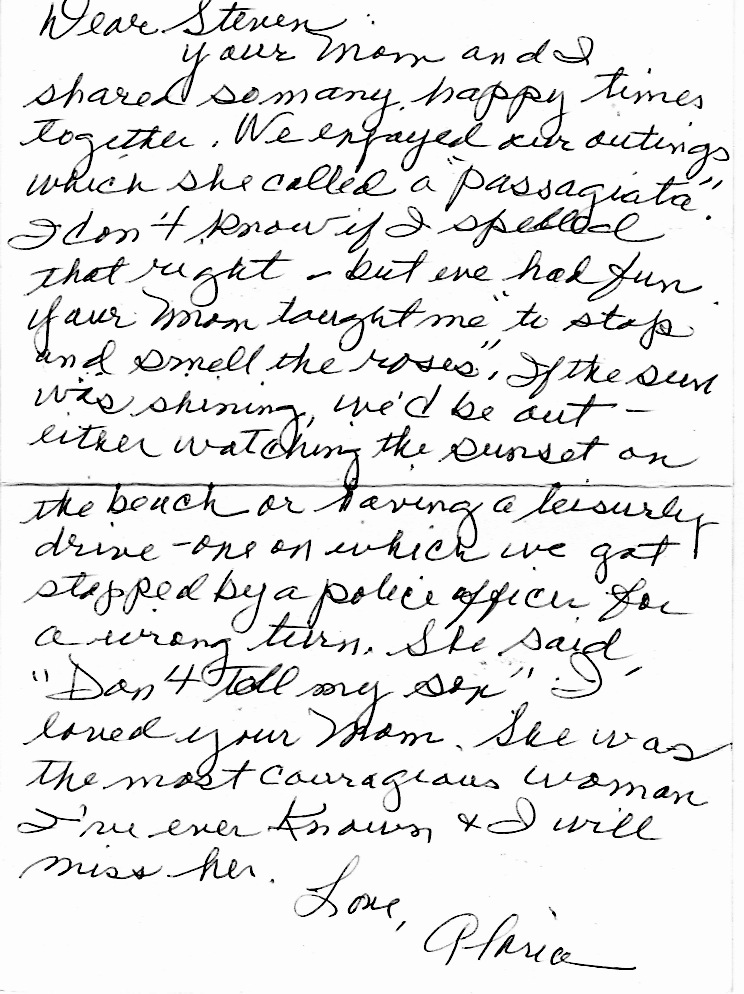 Dear Steven:
your Mom and I
shared so many happy times
together. We enjoyed our outings
which she called a "passagiata".
I don't know if I spelled
that right - but we had fun
your Mom taught me "to stop
and smell the roses", If the sun
was shining, we'd be out -
either watching the sunset on
the beach or having a leisurely
drive - one on which we got
stopped by a police officer for
a wrong turn. She said,
"Don't tell my son" I
loved your Mom. She was
the most courageous woman
I've ever known, & I will
miss her.
Love,
Gloria